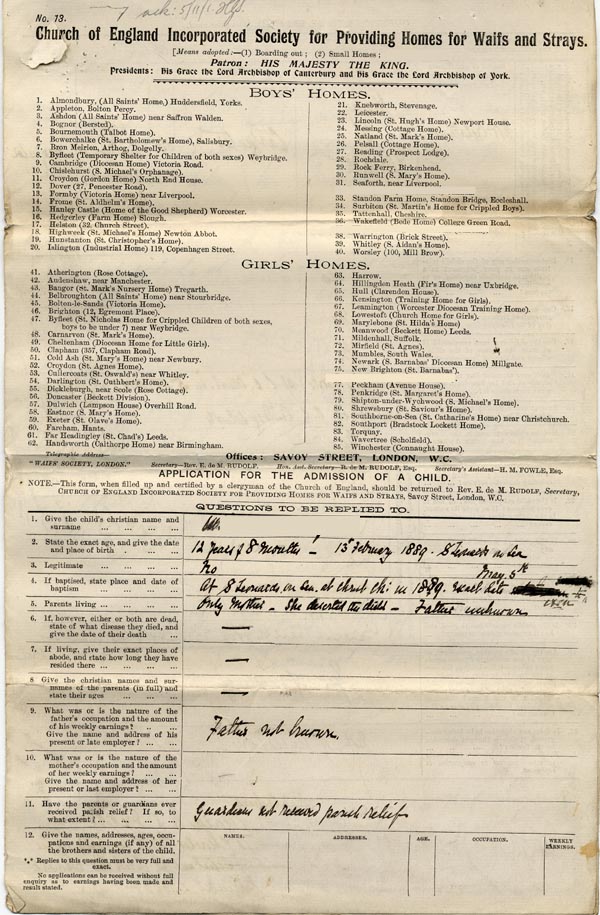 No. 13.
ack: 5/11/1
Church of England Incorporated Society for Providing Homes for Waifs and Strays.
[Means adopted:—(1) Boarding out; (2) Small Homes;
Patron: HIS MAJESTY THE KING.
Presidents: his Grace the Lord Archbishop of Canterbury and his Grace the Lord Archbishop of York.
BOYS' HOMES.
1. Almondbury, (All Saints' Home,) Huddersfield, Yorks.
2. Appleton, Bolton Percy.
3. Ashdon (All Saints' Home) near Saffron Walden.
4. Bognor (Bersted).
5. Bournemouth (Talbot Home).
6. Bowerchalke (St. Bartholomew's Home), Salisbury.
7. Bron Meirion, Arthog, Dolgelly.
8. Byfleet (Temporary Shelter for Children of both sexes) Weybridge.
9. Cambridge (Diocesan Home) Victoria Road.
10. Chislehurst (S. Michael's Orphanage).
11. Croydon (Gordon Home) North End House.
12. Dover (27, Pencester Road).
13. Formby (Victoria Home) near Liverpool.
14. Frome (St. Aldhelm's Home).
15. Hanley Castle (Home of the Good Shepherd) Worcester.
16. Hedgerley (Farm Home) Slough.
17. Helston (32, Church Street).
18. Highweek (St. Michael's Home) Newton Abbot.
19. Hunstanton (St. Christopher's Home).
20. Islington (Industrial Home) 119, Copenhagen Street.
21. Knebworth, Stevenage.
22. Leicester.
23. Lincoln (St. Hugh's Home) Newport House.
24. Messing (Cottage Home).
25. Natland (St. Mark's Home).
26. Pelsall (Cottage Home).
27. Reading (Prospect Lodge).
28. Rochdale.
29. Rock Ferry, Birkenhead.
30. Runwell (S. Mary's Home).
31. Seaforth, near Liverpool.
33. Standon Farm Home, Standon Bridge, Eccleshall.
34. Surbiton (St. Martin's Home for Crippled Boys).
35. Tattenhall, Cheshire.
36. Wakefield (Bede Home) College Green Road.
38. Warrington (Brick Street).
39. Whitley (S. Aidan's Home).
40. Worsley (100, Mill Brow).
GIRLS' HOMES.
41. Atherington (Rose Cottage).
42. Audenshaw, near Manchester.
43. Bangor (St. Mark's Nursery Home) Tregarth.
44. Belbroughton (All Saints' Home) near Stourbridge.
45. Bolton-le-Sands (Victoria Home).
46. Brighton (12, Egremont Place).
47. Byfleet (St. Nicholas Home for Crippled Children of both sexes,
boys to be under 7) near Weybridge.
48. Carnarven (St. Mark's Home).
49. Cheltenham (Diocesan Home for Little Girls).
50. Clapham (357, Clapham Road).
51. Cold Ash (St. Mary's Home) near Newbury.
52. Croydon (St. Agnes Home).
53. Cullercoats (St. Oswald's) near Whitley.
54. Darlington (St. Cuthbert's Home).
55. Dickleburgh, near Scole (Rose Cottage).
56. Doncaster (Beckett Division).
57. Dulwich, (Lampson House) Overhill Road.
58. Eastnor (S. Mary's Home).
59. Exeter (St. Olave's Home).
60. Fareham, Hants.
61. Far Headingley (St. Chad's) Leeds.
62. Handsworth (Calthorpe Home) near Birmingham.
63. Harrow.
64. Hillingden Heath (Fir's Home) near Uxbridge.
65. Hull (Clarendon House).
66. Kensington (Training Home for Girls).
67. Leamington (Worcester Diocesan Training Home).
68. Lowestoft (Church Home for Girls).
69. Marylebone (St. Hilda's Home)
70. Meanwood (Beckett Home) Leeds.
71. Mildenhall, Suffolk.
72. Mirfield (St. Agnes).
73. Mumbles, South Wales.
74. Newark (S. Barnabas' Diocesan Home) Millgate.
75. New Brighton (St. Barnabas').
77. Peckham (Avenue House).
78. Penkridge (St. Margaret's Home).
79. Shipton-under-Wychwood (S. Michael's Home).
80. Shrewsbury (St. Saviour's Home).
81. Southborne-on-Sea (St. Catharine's Home) near Christchurch.
82. Southport (Bradstock Lockett Home).
83. Torquay.
84. Wavertree (Scholfield).
85. Winchester (Connaught House).
Telegraphic Address—
"WAIFS' SOCIETY, LONDON."
Offices: SAVOY STREET, LONDON, W.C.
Secretary—Rev. E. de M. RUDOLF. Hon. Asst. Secretary—R. de M. RUDOLF, Esq. Secretary's Assistant—H. M. FOWLE, Esq.
APPLICATION FOR THE ADMISSION OF A CHILD.
NOTE.—This form, when filled up and certified by a clergyman of the Church of England, should be returned to Rev. E. de M. RUDOLF, Secretary,
CHURCH OF ENGLAND INCORPORATED SOCIETY FOR PROVIDING HOMES FOR WAIFS AND STRAYS, Savoy Street, London, W.C.
QUESTIONS TO BE REPLIED TO.
1. Give the child's christian name and
surname ... ... ... ...
2. State the exact age, and give the date
and place of birth . ... ...
12 years & 8 months — 13th February 1889. St Leonards on Sea
3. Legitimate ... ... ... ...
No
4. If baptised, state place and date of
baptism ... ... ... ...
May 5th
At St Leonards on Sea. at Christ Ch: in 1889. exact date
5. Parents living ... ... ... ...
Only Mother — She deserted the child — Father unknown
6. If, however, either or both are dead,
state of what disease they died, and
give the date of their death ...
—
7. If living, give their exact places of
abode, and state how long they have
resided there ... ... ... ...
—
8 Give the christian names and surnames
of the parents (in full) and
state their ages ... ... ...
—
9. What was or is the nature of the
father's occupation and the amount
of his weekly earnings? .. ...
Give the name and address of his
present or late employer? ... ...
Father not known.
10. What was or is the nature of the
mother's occupation and the amount
of her weekly earnings? ... ...
Give the name and address of her
present or last employer? ... ...
11. Have the parents or guardians ever
received parish relief? If so, to
what extent? ... ... ... ...
Guardians not received parish relief
12. Give the names, addresses, ages, occupations
and earnings (if any) of all
the brothers and sisters of the child.
*** Replies to this question must be very full and
exact.
No applications can be received without full
enquiry as to earnings having been made and
result stated.
NAMES. ADDRESSES. AGE. OCCUPATION. WEEKLY EARNINGS.